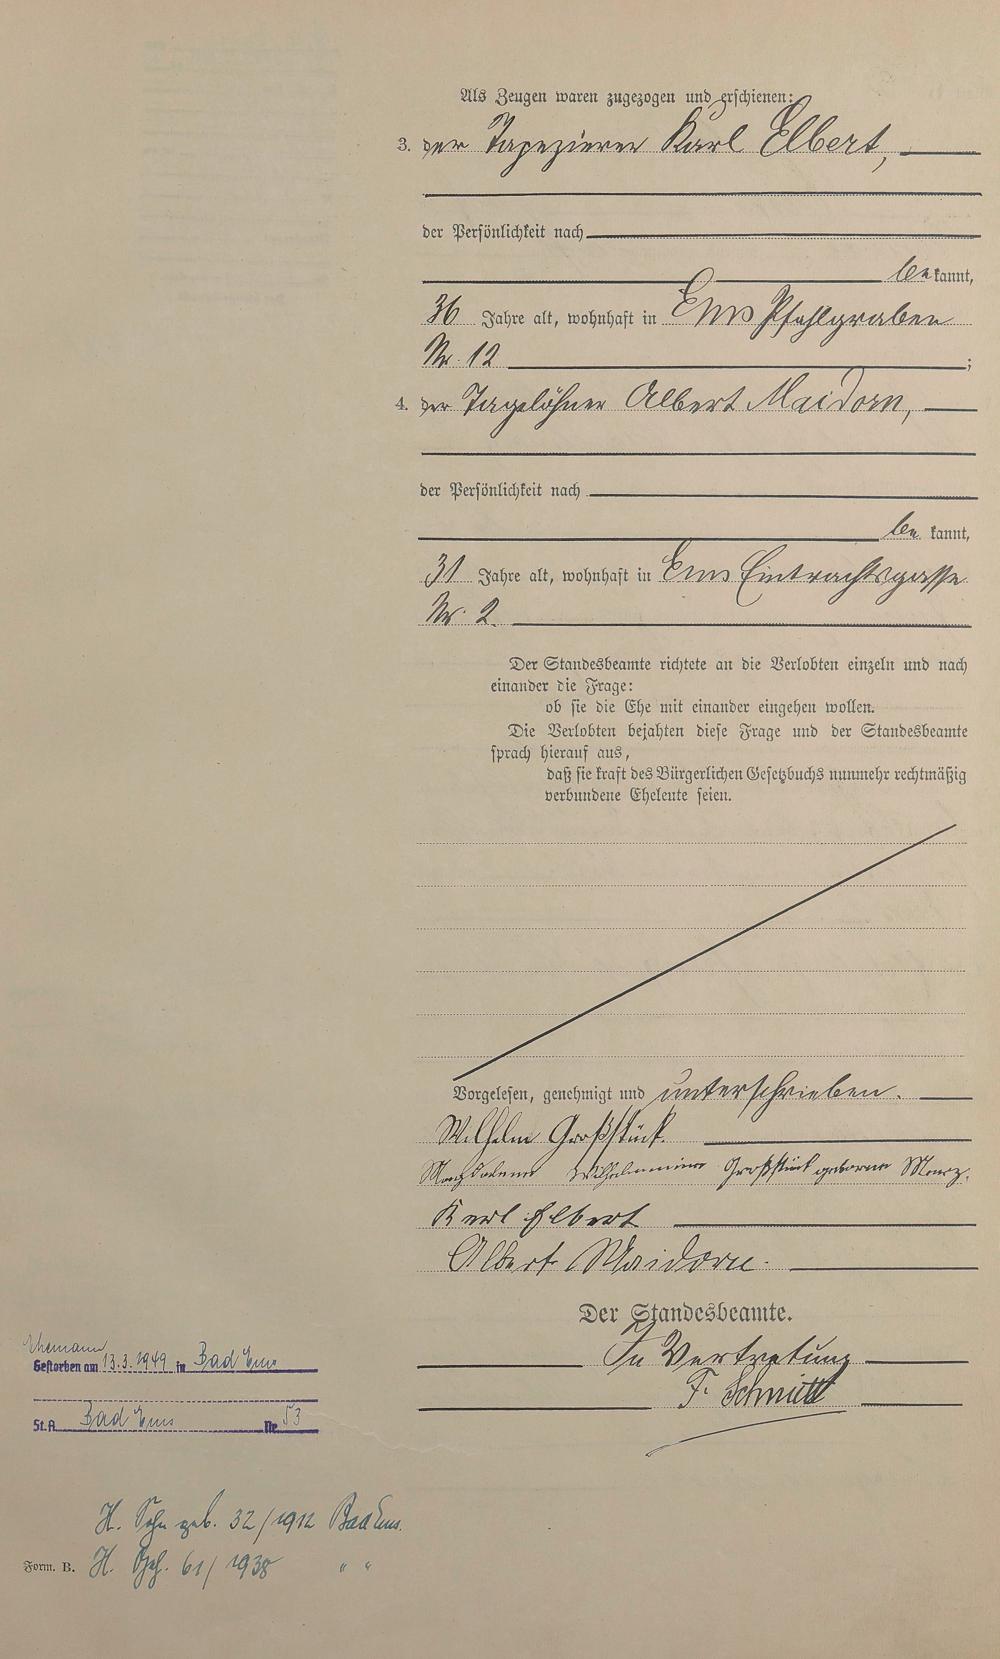 Als Zeugen waren zugezogen und erschienen:
3. der Tapezierer Karl Elbert,
der Persönlichkeit nach
be kannt,
36 Jahre alt, wohnhaft in Ems Pfahlgraben
Nr. 12 ;
4. der Tagelöhner Albert Maidorn,
der Persönlichkeit nach
be kannt,
31 Jahre alt, wohnhaft in Ems Eintrachtsgasse
Nr. 2.
Der Standesbeamte richtete an die Verlobten einzeln und nach
einander die Frage:
ob sie die Ehe mit einander eingehen wollen.
Die Verlobten bejahten diese Frage und der Standesbeamte
sprach hierauf aus,
daß sie kraft des Bürgerlichen Gesetzbuchs nunmehr rechtmäßig
verbundene Eheleute seien.
Vorgelesen, genehmigt und unterschrieben.
Wilhelm Großstück.
Magdalena Wilhelmine Großstück geborene
Karl Elbert
Albert Maidorn.
Der Standesbeamte.
In Vertretung
F. Schmitt
Ehemann
Gestorben am 13.3.1949 in Bad Ems
St.A. Bad Ems Nr. 53
H. Sohn geb. 32/1912 Bad Ems.
Form. B. H. 61/1938 " "